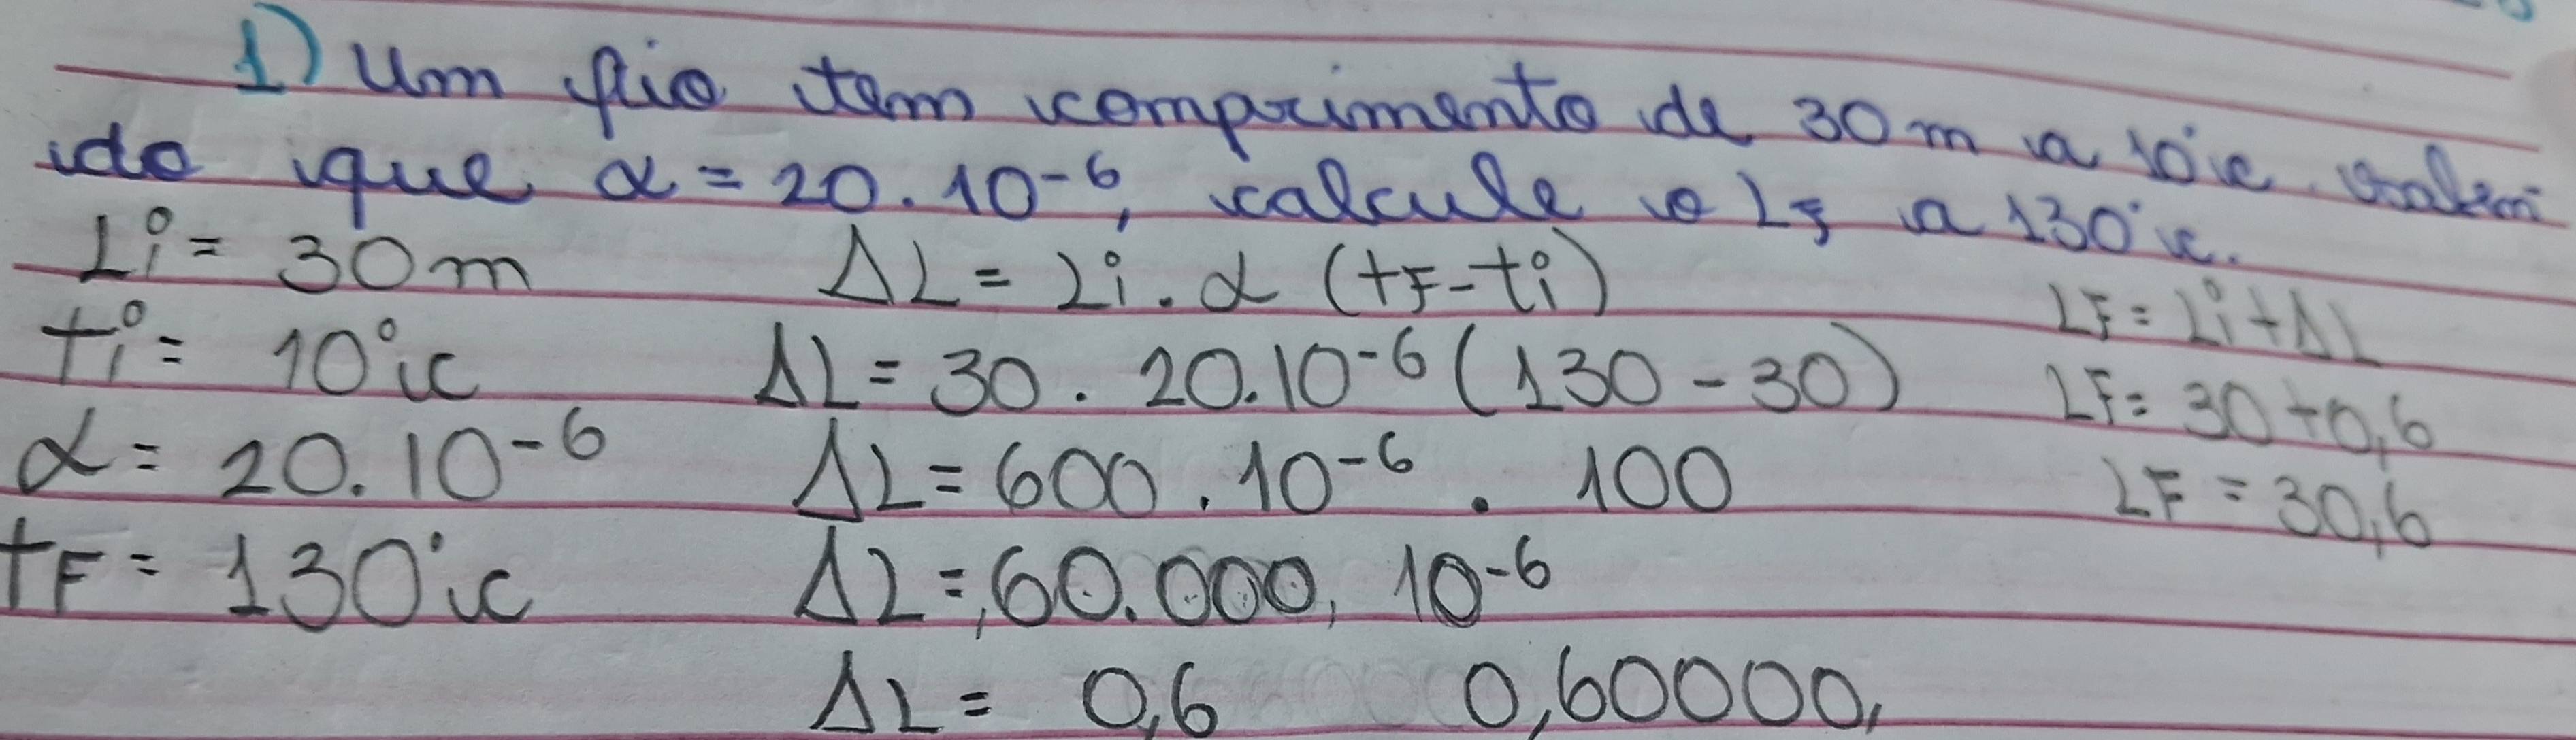 1) Um fio tem comprimento de 30 m a 10°c. Saben
do que α = 20.10⁻⁶, calcule o LF a 130°c.
Li = 30m
ti = 10°c
α = 20.10⁻⁶
tF = 130°c
ΔL = Li . α (tF - ti)
ΔL = 30 . 20.10⁻⁶ (130 - 30)
ΔL = 600 . 10⁻⁶ . 100
ΔL = ,60.000, 10⁻⁶
ΔL = 0,6 0,60000,
LF = Li + ΔL
LF = 30 + 0,6
LF = 30,6